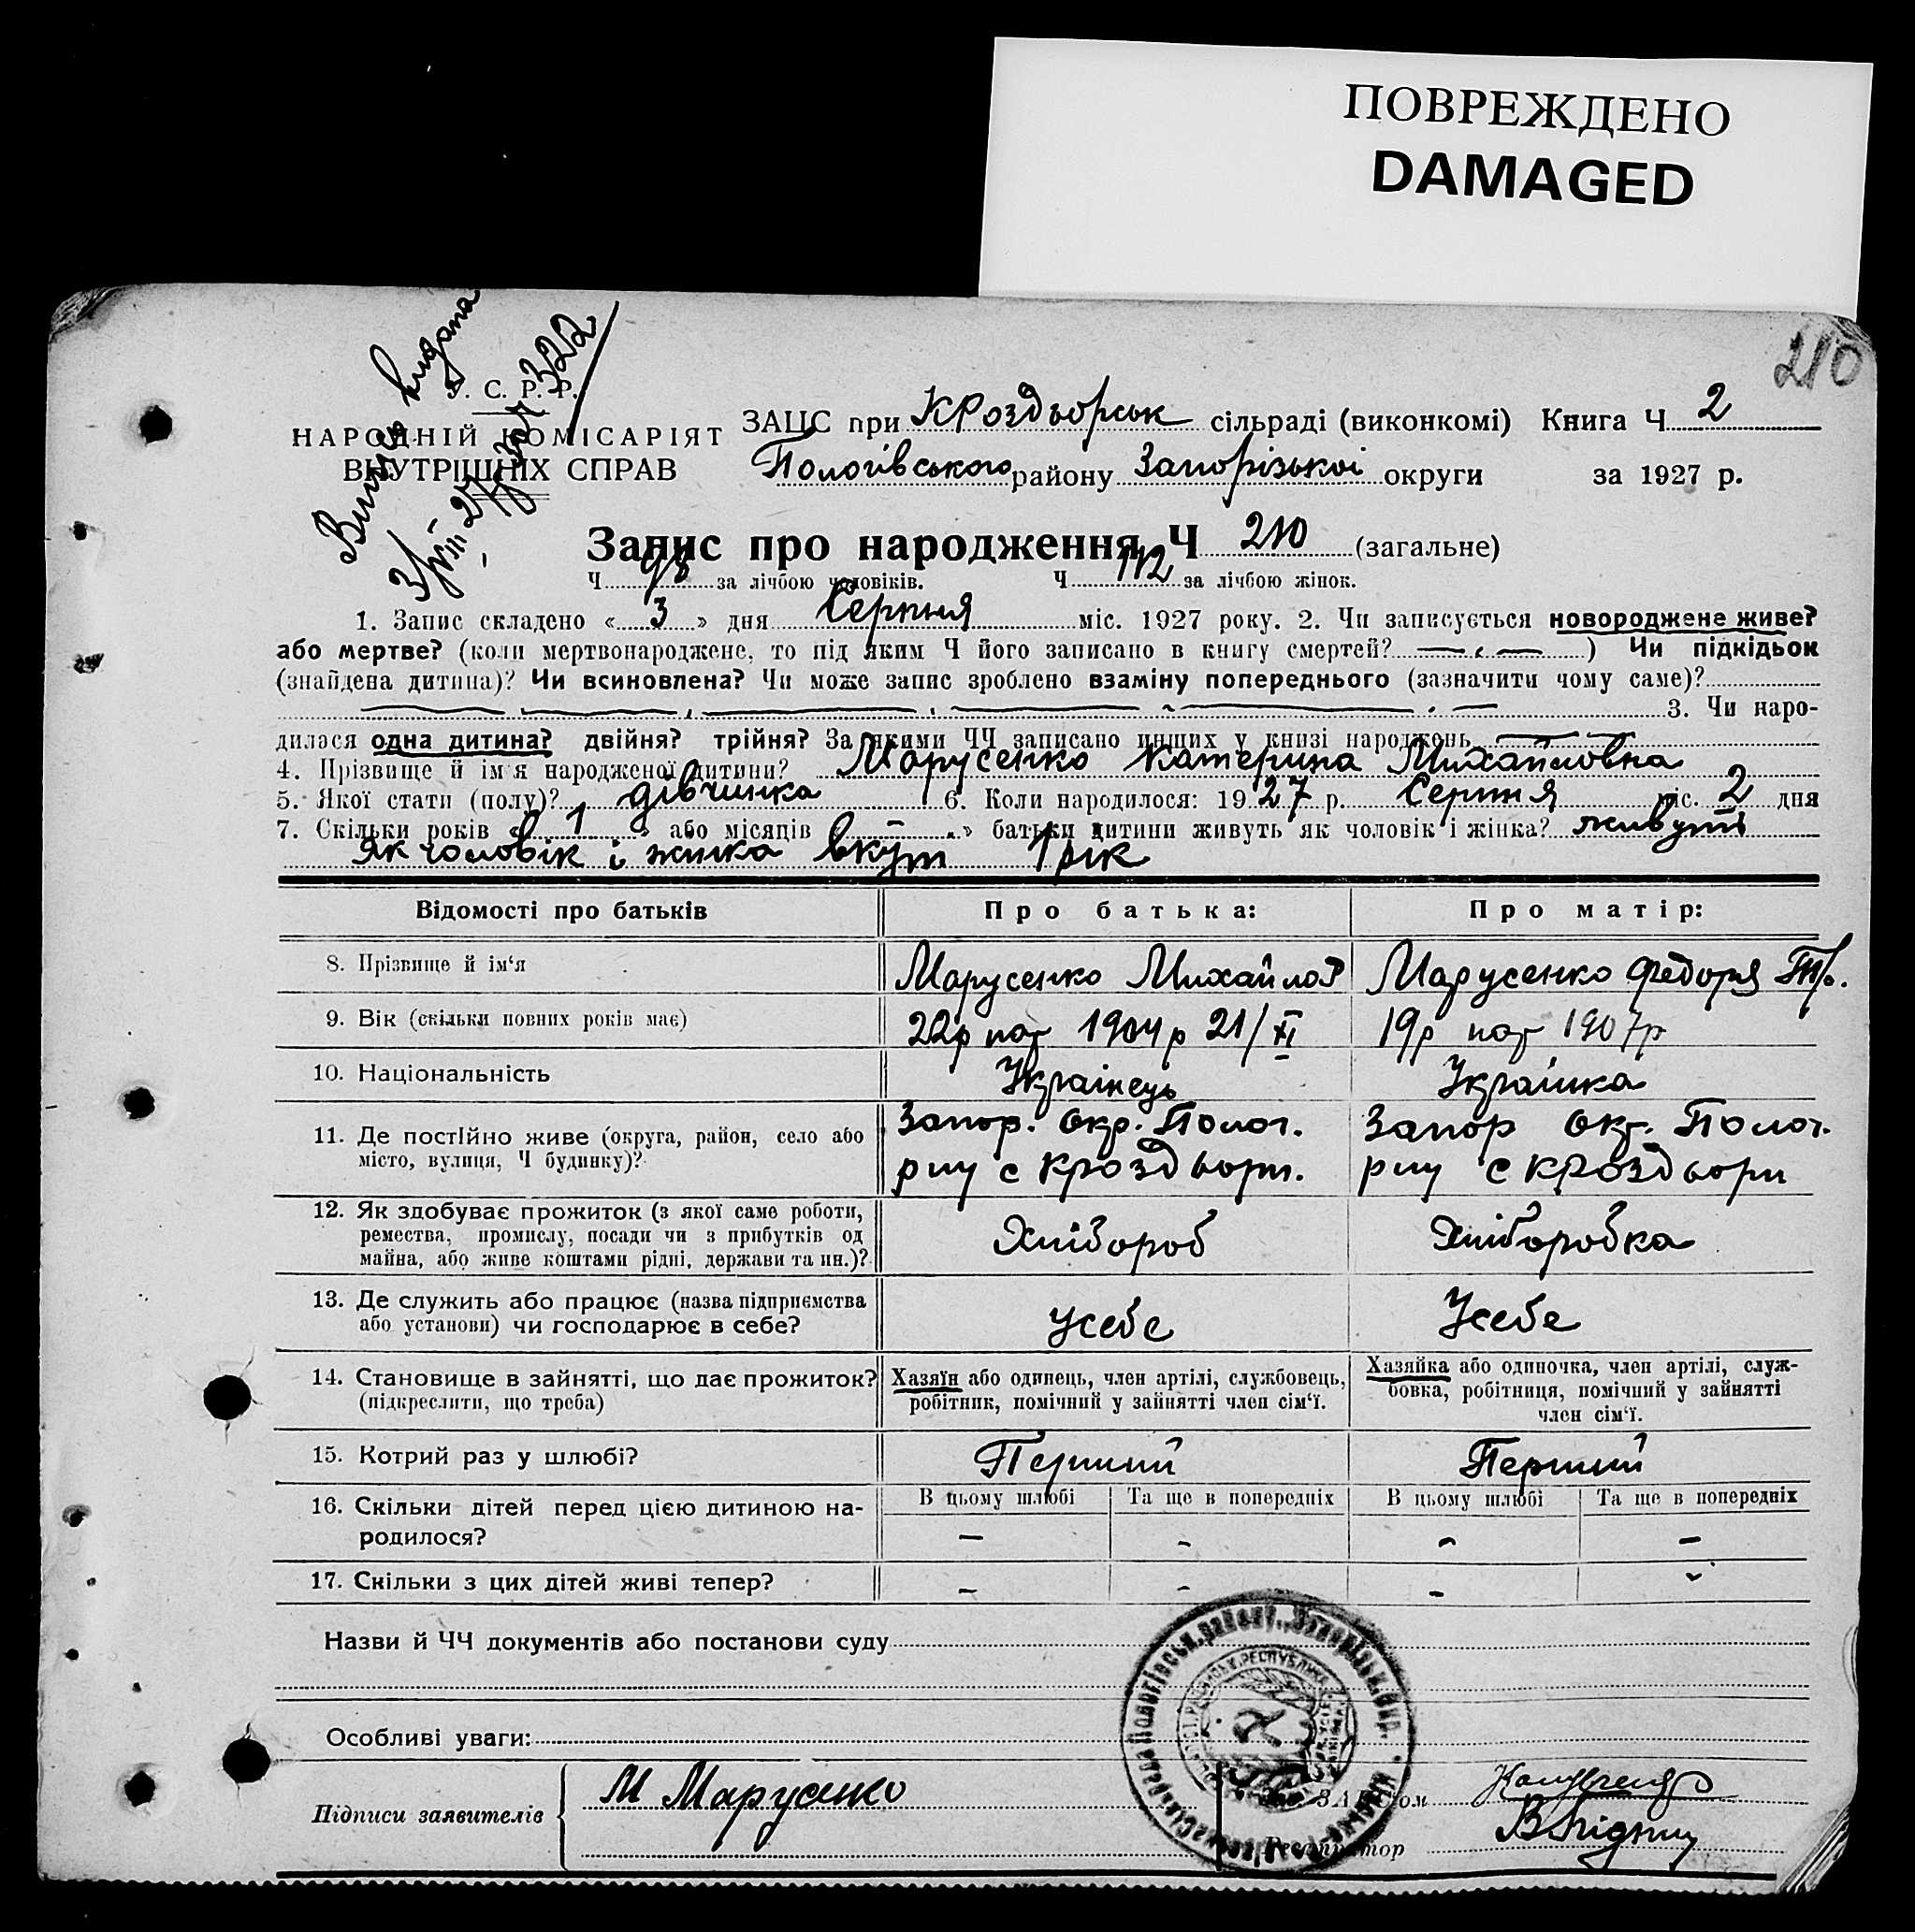 ПОВРЕЖДЕНО
DAMAGED
210
Випись видана
3/VIII-27 р за 322
У. С. Р. Р.
НАРОДНІЙ КОМІСАРІЯТ
ВНУТРІШНІХ СПРАВ
ЗАЦС при КРоздорськ сільраді (виконкомі) Книга Ч 2
Пологівського району Запорізькоі округи за 1927 р.
Запис про народження Ч 210 (загальне)
Ч 98 за лічбою чоловіків. Ч 112 за лічбою жінок.
1. Запис складено «3» дня Серпня міс. 1927 року. 2. Чи записується новороджене живе?
або мертве? (коли мертвонароджене, то під яким Ч його записано в книгу смертей? — ) Чи підкідьок
(знайдена дитина)? Чи всиновлена? Чи може запис зроблено взаміну попереднього (зазначити чому саме)?
3. Чи наро-
дилася одна дитина? двійня? трійня? За якими ЧЧ записано инших у книзі народжень —
4. Прізвище й ім'я народженої дитини? Марусенко Катерина Михайловна
5. Якої стати (полу)? дівчинка 6. Коли народилося: 1927 р. Серпня міс. 2 дня
7. Скільки років «1» або місяців «—» батьки дитини живуть як чоловік і жінка? живуть
як чоловік і жинка вкуп 1 рік
Відомості про батьків Про батька: Про матір:
8. Прізвище й ім'я Марусенко Михайло Марусенко Федоря Тр.
9. Вік (скільки повних років має) 22р 1904 р 21/XI 19р 1907р
10. Національність Українець Українка
11. Де постійно живе (округа, район, село або Запор. окр. Полог. Запор окр. Полог.
місто, вулиця, Ч будинку)? р-ну с КРоздори. р-ну с КРоздори
12. Як здобуває прожиток (з якої саме роботи,
ремества, промислу, посади чи з прибутків од Хлібороб Хліборобка
майна, або живе коштами рідні, держави та ин.)?
13. Де служить або працює (назва підприємства
або установи) чи господарює в себе? усебе Усебе
14. Становище в зайнятті, що дає прожиток? Хазяїн або одинець, член артілі, службовець, Хазяйка або одиночка, член артілі, служ-
(підкреслити, що треба) робітник, помічний у зайнятті член сім'ї. бовка, робітниця, помічний у зайнятті
член сім'ї.
15. Котрий раз у шлюбі? Перший Перший
16. Скільки дітей перед цією дитиною на- В цьому шлюбі Та ще в попередніх В цьому шлюбі Та ще в попередніх
родилося? — — — —
17. Скільки з цих дітей живі тепер? — — — —
Назви й ЧЧ документів або постанови суду
Особливі уваги:
Підписи заявителів М Марусенко
ЗАЦСом
Реєстратор